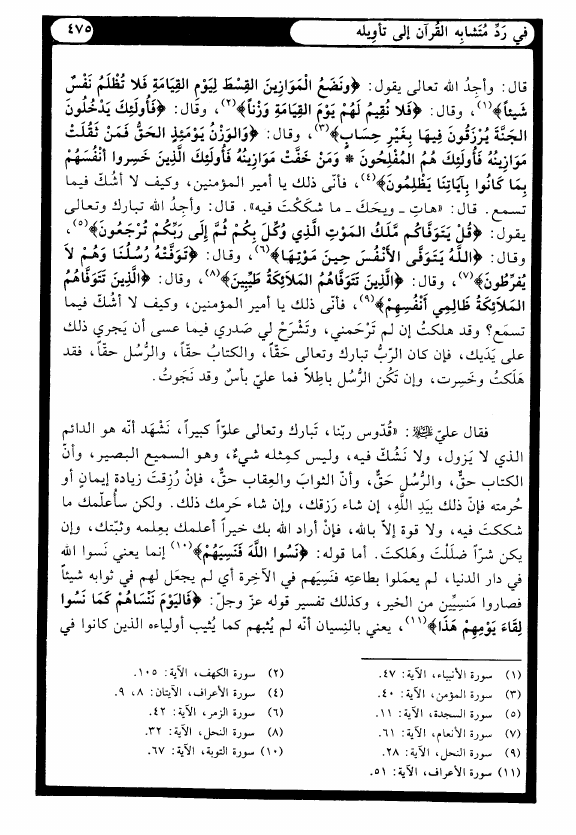 في رَدِّ مُتَشابِه القُرآن إلى تأوِيله
٤٧٥
قال: وأجِدُ الله تعالى يقول: ﴿ونَضَعُ الْمَوَازِينَ القِسْطَ لِيَومِ القِيَامَةِ فَلا تُظْلَمُ نَفْسٌ
شَيئاً﴾(١)، وقال: ﴿فَلَا نُقِيمُ لَهُمْ يَوْمَ القِيَامَةِ وَزْناً﴾(٢)، وقَال: ﴿فَأُولَئِكَ يَدْخُلُونَ
الجَنَّةَ يُرْزَقُونَ فِيهَا بِغَيْرِ حِسَابٍ﴾(٣)، وقال: ﴿وَالوَزْنُ يَوْمَئِذٍ الحَقُّ فَمَنْ ثَقُلَتْ
مَوَازِينُهُ فَأُولَئِكَ هُمُ المُفْلِحُونَ * وَمَنْ خَفَّتْ مَوَازِينُهُ فَأُولَئِكَ الَّذِينَ خَسِروا أنْفُسَهُمْ
بِمَا كَانُوا بِآيَاتِنَا يَظْلِمُونَ﴾(٤)، فأنّى ذلك يا أمير المؤمنين، وكيف لا أشُكّ فيما
تسمع. قال: «هاتِ ـ ويحَكَ ـ ما شكَكْتَ فيه». قال: وأجِدُ الله تبارك وتعالى
يقول: ﴿قُلْ يَتَوَفَّاكُم مَّلَكُ المَوْتِ الَّذِي وُكِّلَ بِكُمْ ثُمَّ إِلَى رَبِّكُمْ تُرْجَعُونَ﴾(٥)،
وقال: ﴿اللَّهُ يَتَوَفَّى الأنْفُسَ حِينَ مَوْتِهَا﴾(٦)، وقال: ﴿تَوَفَّتْهُ رُسُلُنَا وَهُمْ لاَ
يُفَرِّطُونَ﴾(٧)، وقال: ﴿الَّذِينَ تَتَوَفَّاهُمُ المَلاَئِكَةُ طَيِّبِينَ﴾(٨)، وقال: ﴿الَّذِينَ تَتَوَفَّاهُمُ
المَلاَئِكَةُ ظَالِمِي أَنْفُسِهِمْ﴾(٩)، فأنّى ذلك يا أمير المؤمنين، وكيف لا أشُكّ فيما
تسمَع؟ وقد هلكتُ إن لم تَرْحَمني، وتَشْرَح لي صَدري فيما عسى أن يَجري ذلك
على يَدَيك، فإن كان الرّبُّ تبارك وتعالى حَقّاً، والكتابُ حقّاً، والرُّسل حقّاً، فقد
هَلَكتُ وخَسِرت، وإن تَكُن الرُّسل باطِلاً فما عليّ بأسٌ وقد نَجَوتُ.
فقال عليّ ﷺ: «قُدّوس ربّنا، تَبارك وتعالى علوّاً كبيراً، نَشْهَد أنّه هو الدائم
الذي لا يَزول، ولا نَشُكّ فيه، وليس كمِثله شيءٌ، وهو السميع البصير، وأنّ
الكتاب حقٌّ، والرُّسل حَقٌّ، وأنّ الثوابَ والعِقاب حقّ، فإنْ رُزِقتَ زيادة إيمانٍ أو
حُرمته فإنّ ذلك بيَدِ اللَّهِ، إن شاء رَزقك، وإن شاء حَرمك ذلك. ولكن سأُعلّمك ما
شككتَ فيه، ولا قوة إلاّ بالله، فإنْ أراد الله بك خيراً أعلمك بعِلمه وثبّتك، وإن
يكن شرّاً ضلَلْتَ وهَلكتَ. أما قوله: ﴿نَسُوا اللَّهَ فَنَسِيَهُمْ﴾(١٠) إنما يعني نَسوا الله
في دار الدنيا، لم يعمَلوا بطاعتِه فنَسِيَهم في الآخِرة أي لم يجعَل لهم في ثوابه شيئاً
فصاروا مَنسِيِّين من الخير، وكذلك تفسير قوله عزّ وجلّ: ﴿فَاليَوْمَ نَنْسَاهُمْ كَمَا نَسُوا
لِقَاءَ يَوْمِهِمْ هَذَا﴾(١١)، يعني بالنِسيان أنّه لم يُثبهم كما يُثيب أولياءه الذين كانوا في
(١) سورة الأنبياء، الآية: ٤٧.
(٢) سورة الكهف، الآية: ١٠٥.
(٣) سورة المؤمن، الآية: ٤٠.
(٤) سورة الأعراف، الآيتان: ٨، ٩.
(٥) سورة السجدة، الآية: ١١.
(٦) سورة الزمر، الآية: ٤٢.
(٧) سورة الأنعام، الآية: ٦١.
(٨) سورة النحل، الآية: ٣٢.
(٩) سورة النحل، الآية: ٢٨.
(١٠) سورة التوبة، الآية: ٦٧.
(١١) سورة الأعراف، الآية: ٥١.